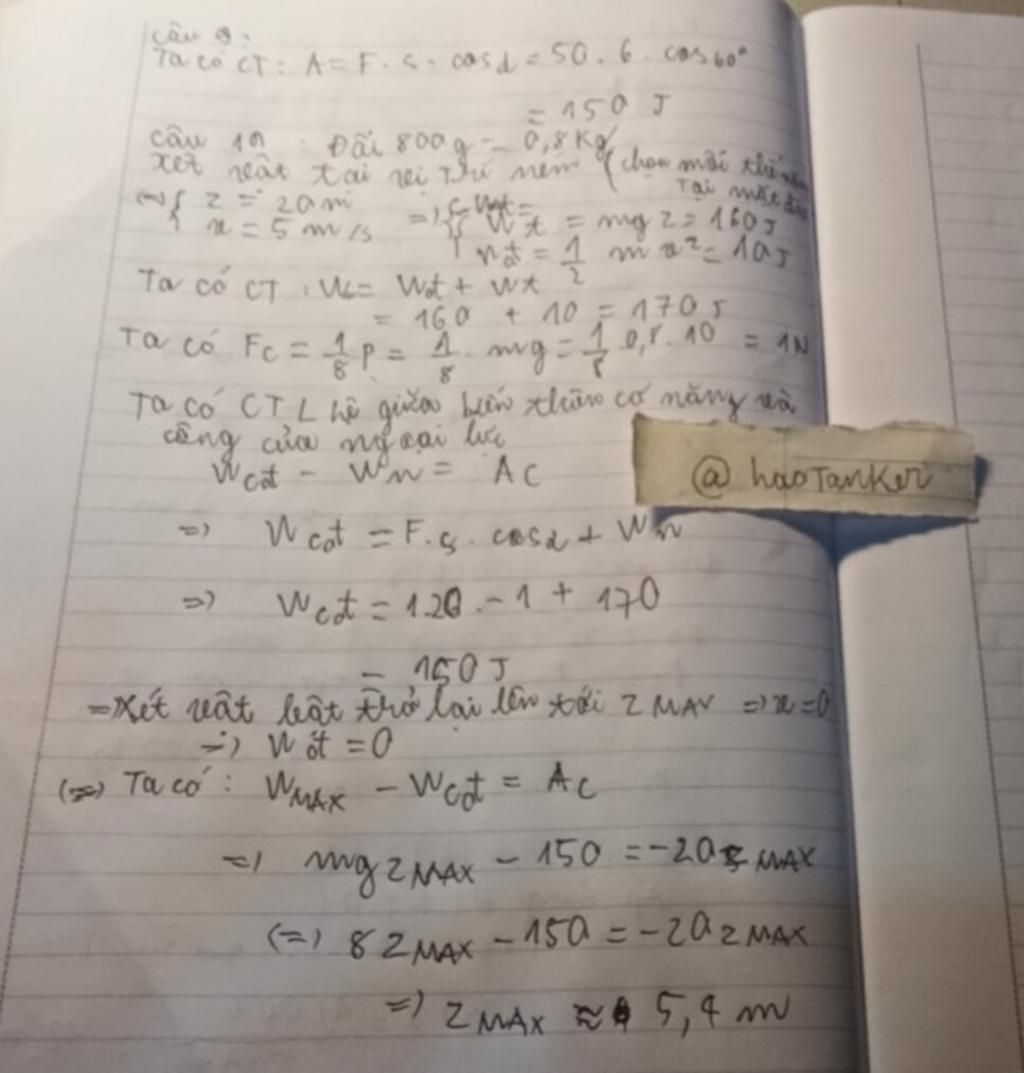 Câu 9:
Ta có CT: A = F. s. cosα = 50. 6. cos60°
= 150 J
Câu 10: Đổi 800g = 0,8Kg
Xét vật tại vị trí ném (chọn mốc thế năng
tại mặt đất
(=) { z = 20m =) { Wt = mgz = 160J
v = 5m/s Wđt = 1/2 m v² = 10J
Ta có CT: W = Wđt + Wt
= 160 + 10 = 170 J
Ta có Fc = 1/8 P = 1/8. mg = 1/8 0,8. 10 = 1N
Ta có CT L hệ giữa biến thiên cơ năng và
công của ngoại lực
Wcđt - Wn = Ac
@haoTanker
=) Wcđt = F. s. cosα + Wn
=) Wcđt = 1.20.-1 + 170
= 150J
=Xét vật bật trở lại lên tới zMAX =) v = 0
=) Wđt = 0
(=) Ta có: WMAX - Wcđt = Ac
=) mgzMAX - 150 = -20zMAX
(=) 8zMAX - 150 = -20zMAX
=) zMAX ≈ 5,4 m